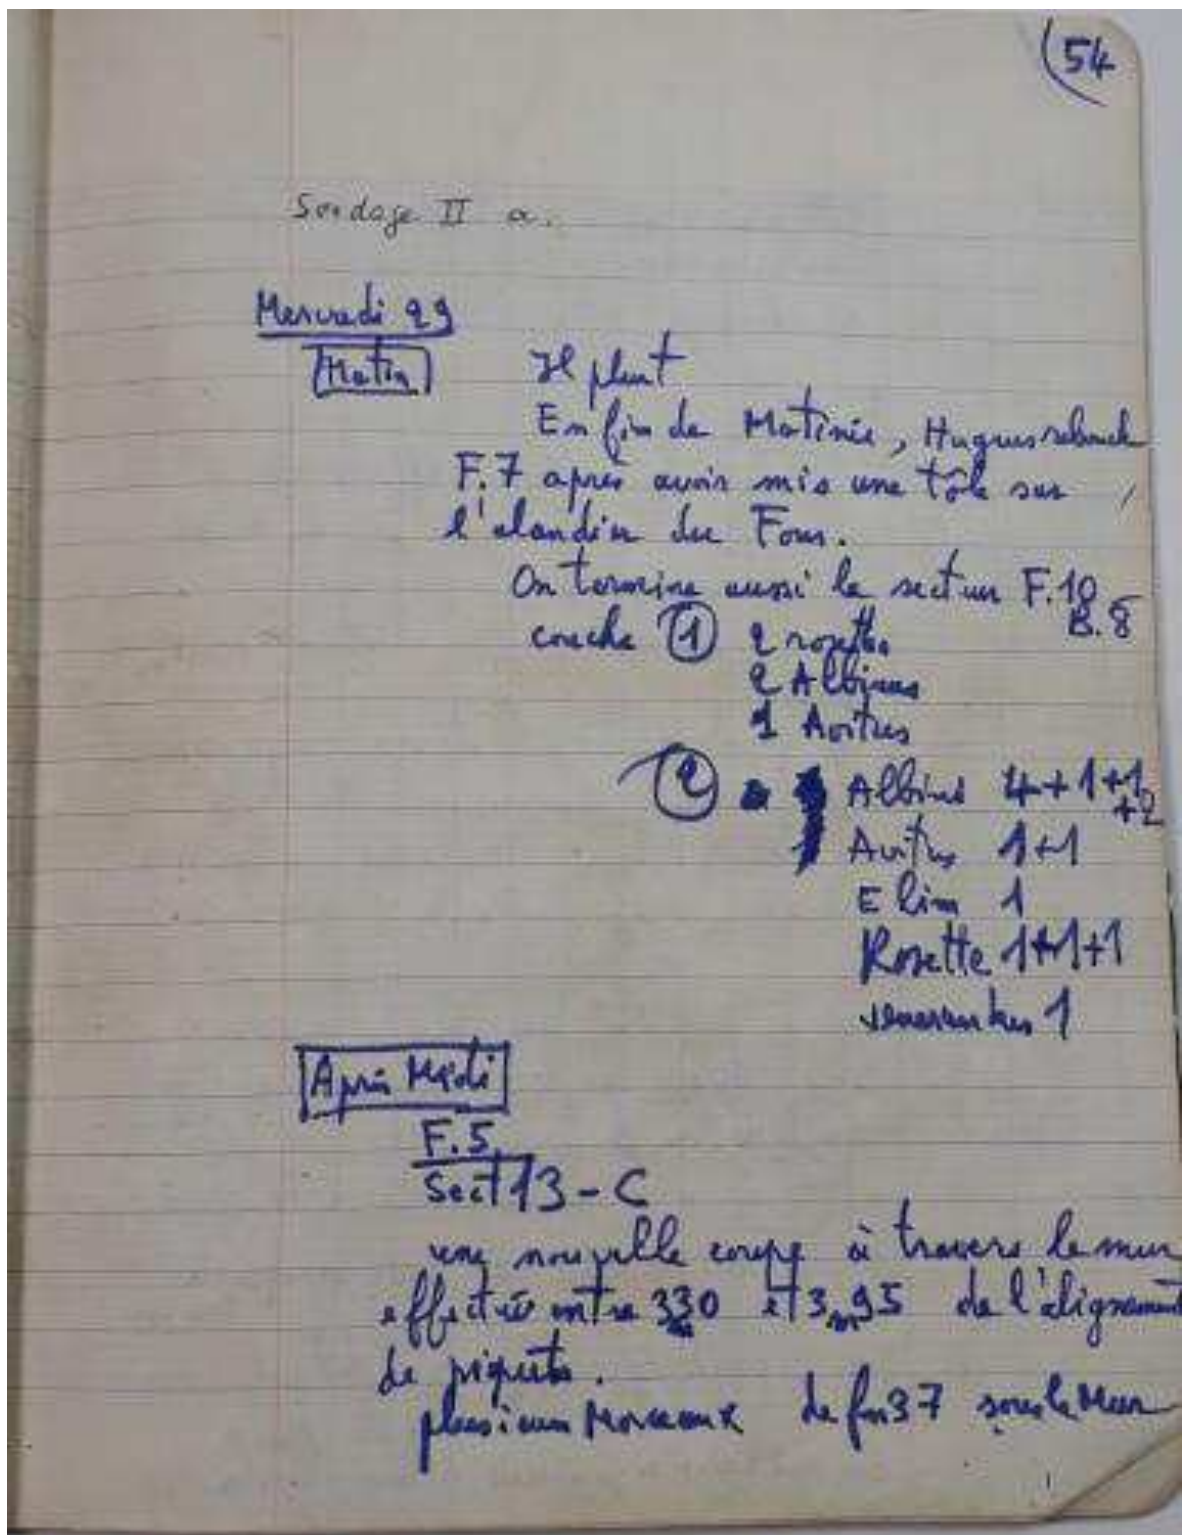 54
Sondage II a.
Mercredi 29
Matin
Il pleut
En fin de Matinée, Hugues rebouche
F.7 après avoir mis une tôle sur
l'alandier du Four.
On termine aussi le secteur F.10
B.8
couche 1 2 rosettes
2 Albinus
1 Avitus
2 Albinus 4+1+1
+2
Avitus 1+1
Elim 1
Rosette 1+1+1
1
Après Midi
F.5
Sect 13-C
une nouvelle coupe à travers le mur
effectuée entre 3m30 et 3m95 de l'alignement
de piquets.
plusieurs Morceaux de fm37 sous le Mur